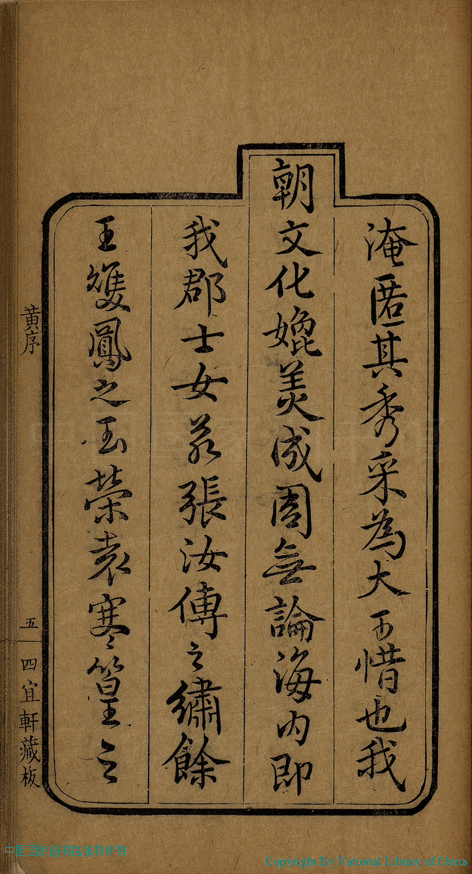 淹匿其秀采為大可惜也我
朝文化媲美成周無論海内即
我郡士女若張汝傳之繡餘
王雙鳳之玉榮袁寒篁之
黄序
五
四宜軒藏板
Copyright By National Library of China